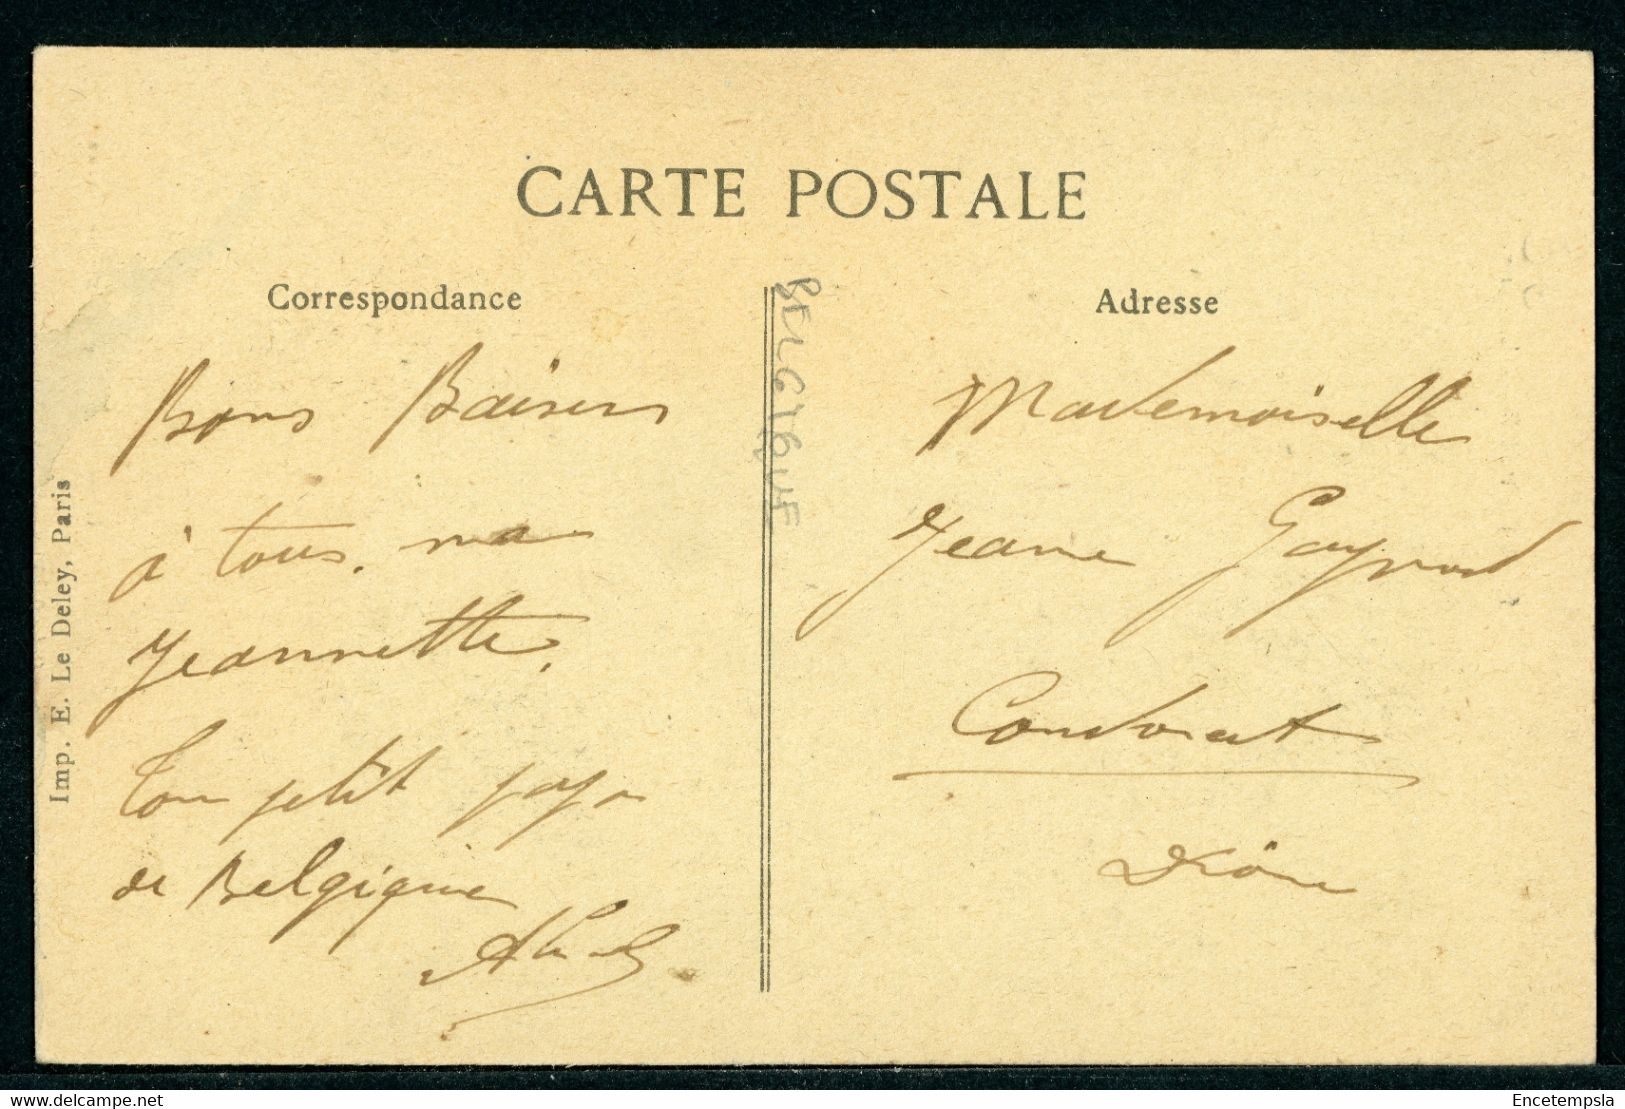 CARTE POSTALE
Correspondance
Bons Baisers
à tous. ma
Jeannette.
Ton petit papa
de Belgique
Adresse
Mademoiselle
Jeanne
Condorcet
Drôme
BELGIQUE
Imp. E. Le Deley, Paris
delcampe.net
Encetempsla